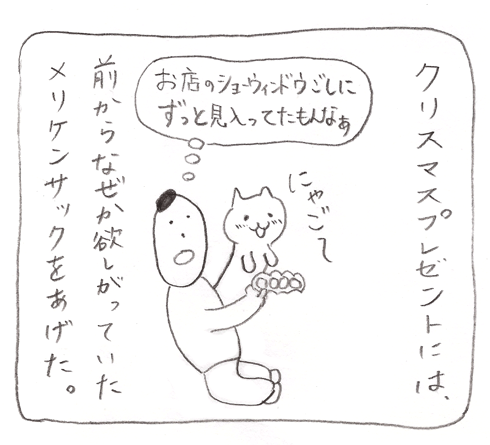 クリスマスプレゼントには、
お店のショーウィンドウごしに
ずっと見入ってたもんなぁ
にゃごて
前からなぜか欲しがっていた
メリケンサックをあげた。